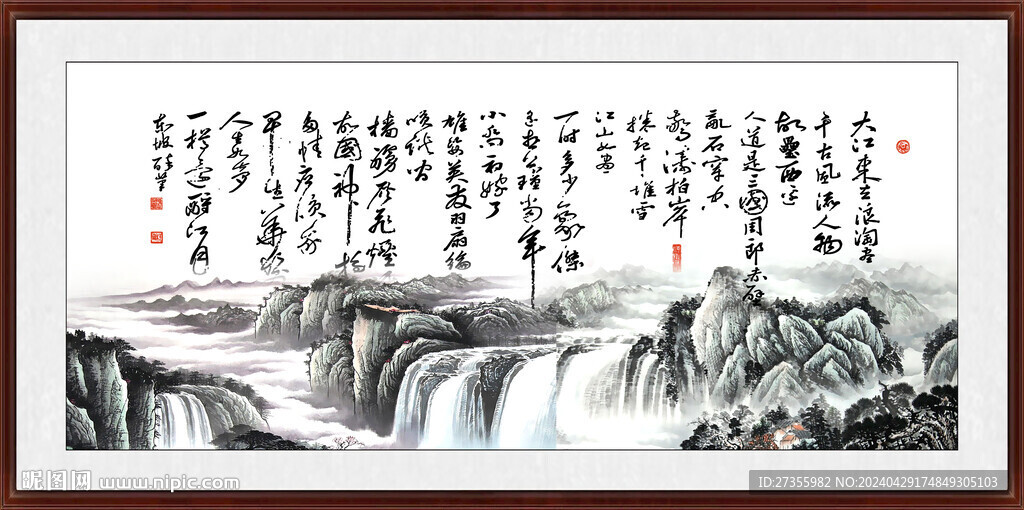 大江東去浪淘盡
千古風流人物
故壘西邊
人道是三國周郎赤壁
亂石穿空
驚濤拍岸
捲起千堆雪
江山如畫
一時多少豪傑
遙想公瑾當年
小喬初嫁了
雄姿英發羽扇綸
談笑間
檣艣灰飛煙
故國神
多情應笑我
早生華髮
人生如夢
一樽還酹江月
東坡醉筆
昵图网 www.nipic.com
ID:27355982 NO:20240429174849305103